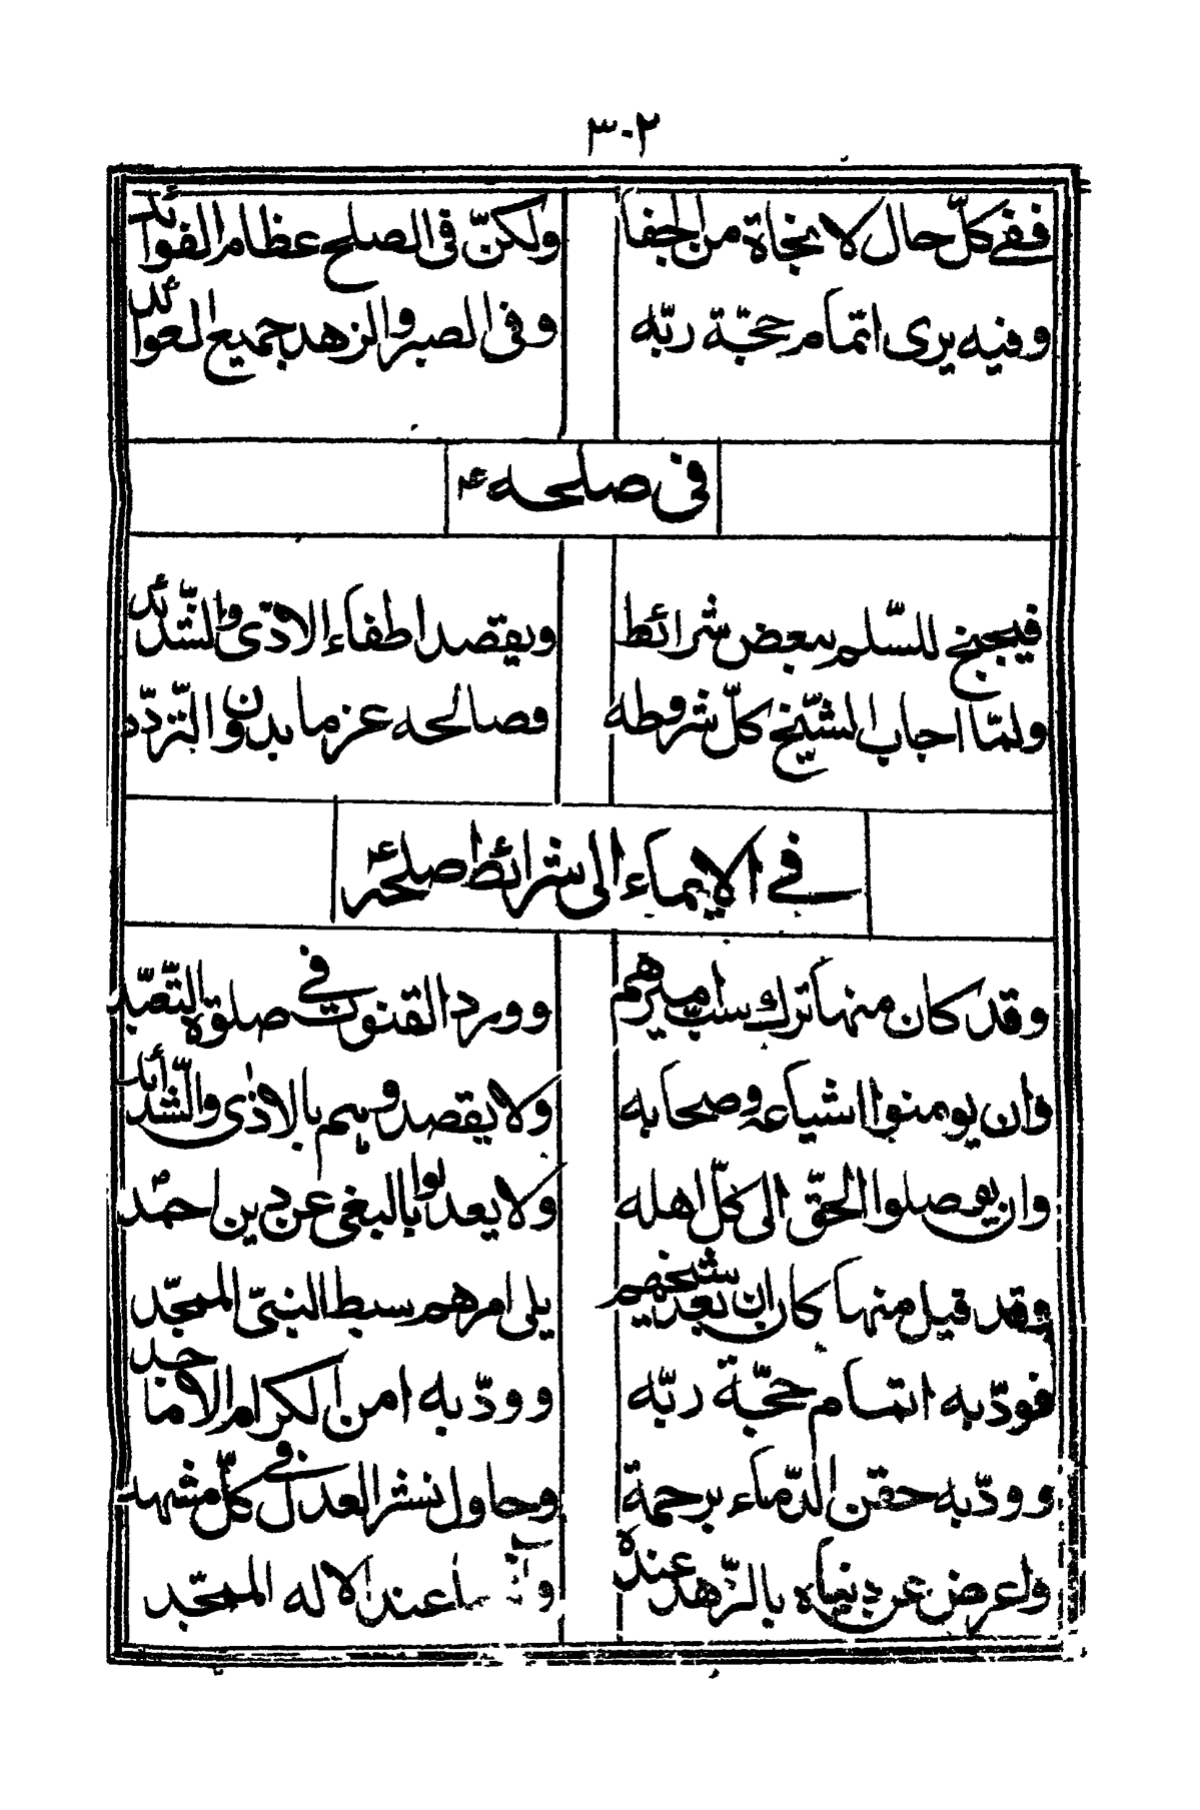 ٣٠٢
ففي كلّ حال لا نجاة من الجفا ولكنّ فى الصلح عظام الفوائد
وفيه يرى اتمام حجّة ربّه وفى الصبر والزهد جميع العوائد
فى صلحه ع
فيجنح للسّلم ببعض شرائط ويقصد اطفاء الاذى والشّدائد
ولمّا اجاب الشّيخ كلّ شروطه فصالحه عزما بدون التّردّد
في الايماء الى شرائط صلحه ع
وقد كان منها ترك سبّ اميرهم وورد القنوت في صلوة التّعبّد
وان يومنوا اشياعه وصحابه ولا يقصدوهم بالاذى والشّدائد
وان يوصلوا الحقّ الى كلّ اهله ولا يعدلوا بالبغى عن دين احمد
وقد قيل منها كان ان بعد شيخهم يلى امرهم سبط النبىّ الممجّد
فودّ به اتمام حجّة ربّه وودّ به امن الكرام الاماجد
وودّ به حقن الدّماء برحمة وحاول نشر العدل في كلّ مشهد
واعرض عن دنياه بالزّهد عنده عند الاله الممجّد